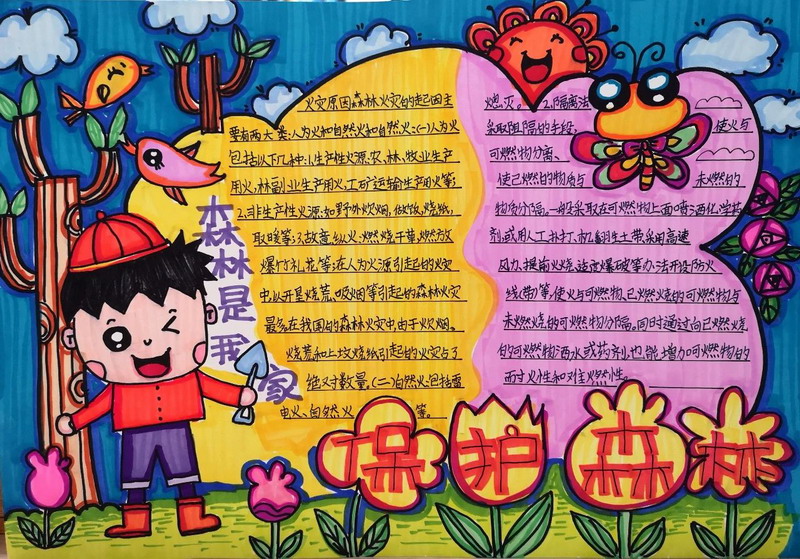 森林是我家
火灾原因森林火灾的起因主
要有两大类:人为火和自然火和自然火:(一)人为火
包括以下几种:1.生产性火源:农、林、牧业生产
用火,林副业生产用火,工矿运输生产用火等;
2.非生产性火源:如野外炊烟,做饭,烧纸,
取暖等;3.故意纵火:燃烧干草,燃放
爆竹礼花等;在人为火源引起的火灾
中,以开垦烧荒、吸烟等引起的森林火灾
最多,在我国的森林火灾中,由于炊烟。
烧荒和上坟烧纸引起的火灾占了
绝对数量,(二)自然火:包括雷
电火、自然火等。
熄灭。2.隔离法
采取阻隔的手段, 使火与
可燃物分离、
使已燃的物质与 未燃的
物质分隔。一般采取在可燃物上面喷洒化学药
剂,或用人工扑打、机翻生土带采用高速
风力、提前火烧、适度爆破等办法开设防火
线(带)等,使火与可燃物、已燃烧的可燃物与
未燃烧的可燃物分隔。同时通过向已燃烧
的可燃物洒水或药剂,也能增加可燃物的
耐火性和难燃性。
保护森林